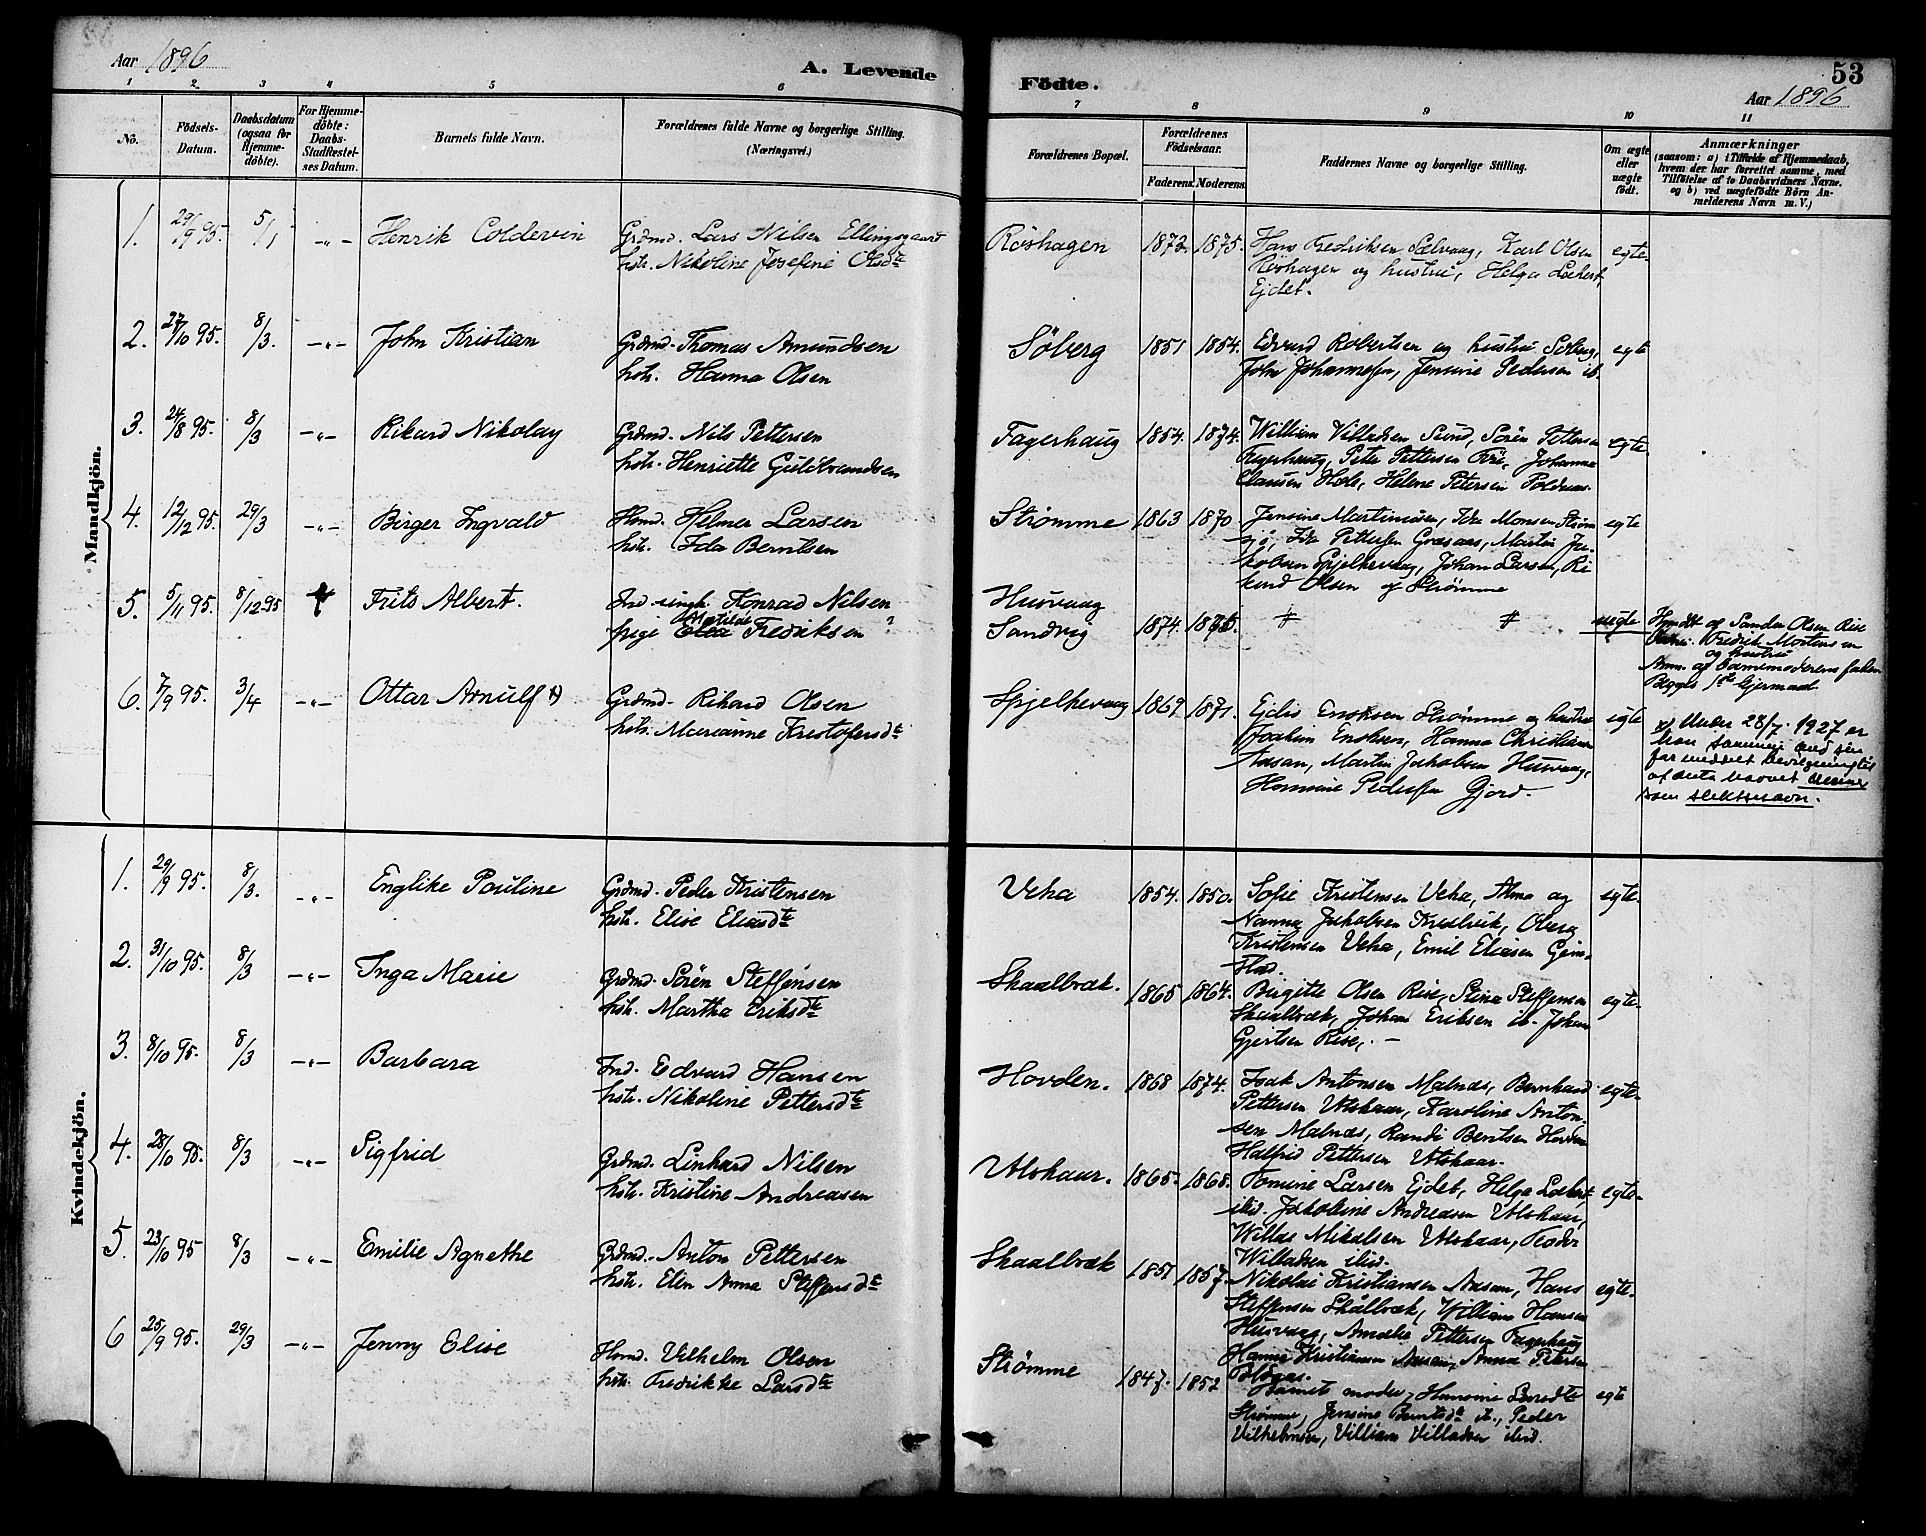 Aar 1896
A. Levende
Födte.
53
Aar 1896
1 2 3 4 5 6 7 8 9 10 11
No.
Födsels-
Datum.
Daabsdatum
(ogsaa for
Hjemme-
döbte).
For Hjemme-
döbte:
Daabs-
Stadfæstel-
ses Datum.
Barnets fulde Navn.
Forældrenes fulde Navne og borgerlige Stilling.
(Næringsvei.)
Forældrenes Bopæl.
Forældrenes
Födselsaar.
Faderens. Moderens.
Faddernes Navne og borgerlige Stilling.
Om ægte
eller
uægte
födt.
Anmærkninger
(saasom: a) i Tilfælde af Hjemmedaab,
hvem der har forrettet samme, med
Tilföielse af to Daabsvidners Navne,
og b) ved uægtefödte Börn An-
melderens Navn m. V.)
Mandkjön.
1. 29/9 95. 5/1 -"- Henrik Coldevin
Grdmd. Lars Nilsen Ellingsgaard
hstr. Nikoline Josefine Olsdte
Röshagen 1872. 1875.
Hans Fredriksen Sælvaag, Karl Olsen
Röshagen og hustru, Helga Lockert,
Ejdet.
egte.
2. 27/10 95. 8/3. -"- John Kristian
Grdmd. Thomas Amundsen
hstr. Hanna Olsen
Söberg 1851 1854.
Edvard Robertsen og hustru Söberg,
John Johannessen, Jensine Pedersen ib.
egte
3. 24/8 95. 8/3 -"- Rikard Nikolay
Grdmd. Nils Pettersen
hstr. Henriette Guldbrandsen
Fagerhaug 1854. 1874.
William Villadsen Sund, Sörén Pettersen
Fagerhaug, Peter Pettersen , Johanna
Clausen , Helene Petersen
egte.
4. 12/12 95. 29/3 -"- Birger Ingvald
Hmd. Helmer Larsen
hstr. Ida Berntsen
Strømme 1863 1870.
Jensine Martinusen, Ida Monsen Strøm
sjö, Ida Pettersen Græsaas, Martin Ja-
kobsen Spjelkevaag, Johan Larsen, Ri
kard Olsen af Strømme
egte
5. 5/11 95. 8/12 95 Frits Albert.
Ind. ungk. Konrad Nilsen
pige Matilde Fredriksen ?
Husvaag
Sandvig 1874. 1875.
uegte
Hjmdt af Sander Olsen Rise
Fredrik Mortensen
og hustru
Anm. af barnemoderens fader.
Begges 1ste Lejermaal.
6. 7/9 95. 3/4 -"- Ottar Arnulf x)
Grdmd. Rikard Olsen
hstr. Marianne Kristofersdt
Spjelkevaag 1869. 1871.
Ejlis Enoksen Strømme og hustru
Joakim Enoksen, Hanna Christiansen
Aasan, Martin Jakobsen Husvaag,
Hansine Pedersen Gjord.
egte
x) Under 28/7. 1927 er
han sammen med sin
far meddelt bevilgning til
at anta navnet
som slektsnavn.
Kvindekjön.
1. 29/9 95. 8/3. -"- Englike Pauline
Grdmd. Peder Kristensen
hstr. Elise Eliasdte
Veha 1854. 1850.
Sofie Kristensen Veha, Alma og
Nanna Jakobsen , Oberg
Kristensen Veha, Emil Eliasen Gim-
stad.
egte.
2. 31/10 95. 8/3 -"- Inga Marie
Grdmd. Sörén Steffensen
hstr. Martha Eriksdte
Skaalbræk. 1865 1864.
Birgitte Olsen Rise, Stina Steffensen
Skaalbræk, Johan Eriksen ib. Johan
Gjertsen Rise, . —
egte.
3. 8/10 95. 8/3 -"- Barbara
Ind. Edvard Hansen
hstr. Nikoline Pettersdte
Hovden. 1868 1874.
Isak Antonsen Malnæs, Bernhard
Pettersen Utskaar, Karoline Anton-
sen Malnæs, Randi Bentsen Hovden
Halfrid Pettersen Utskaar.
egte.
4. 28/10 95. 8/3 -"- Sigfrid
Grdmd. Linhard Nilsen
hstr. Kristine Andreasen
Utskaar. 1865. 1868.
Tomine Larsen Ejdet, Helga Lockert
ibid. Jakobine Andreasen Utskaar,
Willas Mikalsen Utskaar, Peder
Willadsen ibid.
egte.
5. 23/10 95 8/3 -"- Emilie Agnethe
Grdmd. Anton Pettersen
hstr. Elin Anna Steffensdte
Skaalbræk 1851 1857.
Nikolai Kristiansen Aasan, Hans
Steffensen Skålbræk, William Hansen
Husvaag, Amalie Pettersen Fagerhaug
Hanna Kristiansen Aasan, Anna Petersen
egte.
6 25/9 95. 29/3 -"- Jenny Elise
Hmd. Vilhelm Olsen
hstr. Fredrikke Larsdte
Strømme 1847. 1852
Barnets moder, Hansine
Strømme, Jensine Berntsdte ib., Peder
Vilhelmsen, Villiam Villadsen ibid.
egte